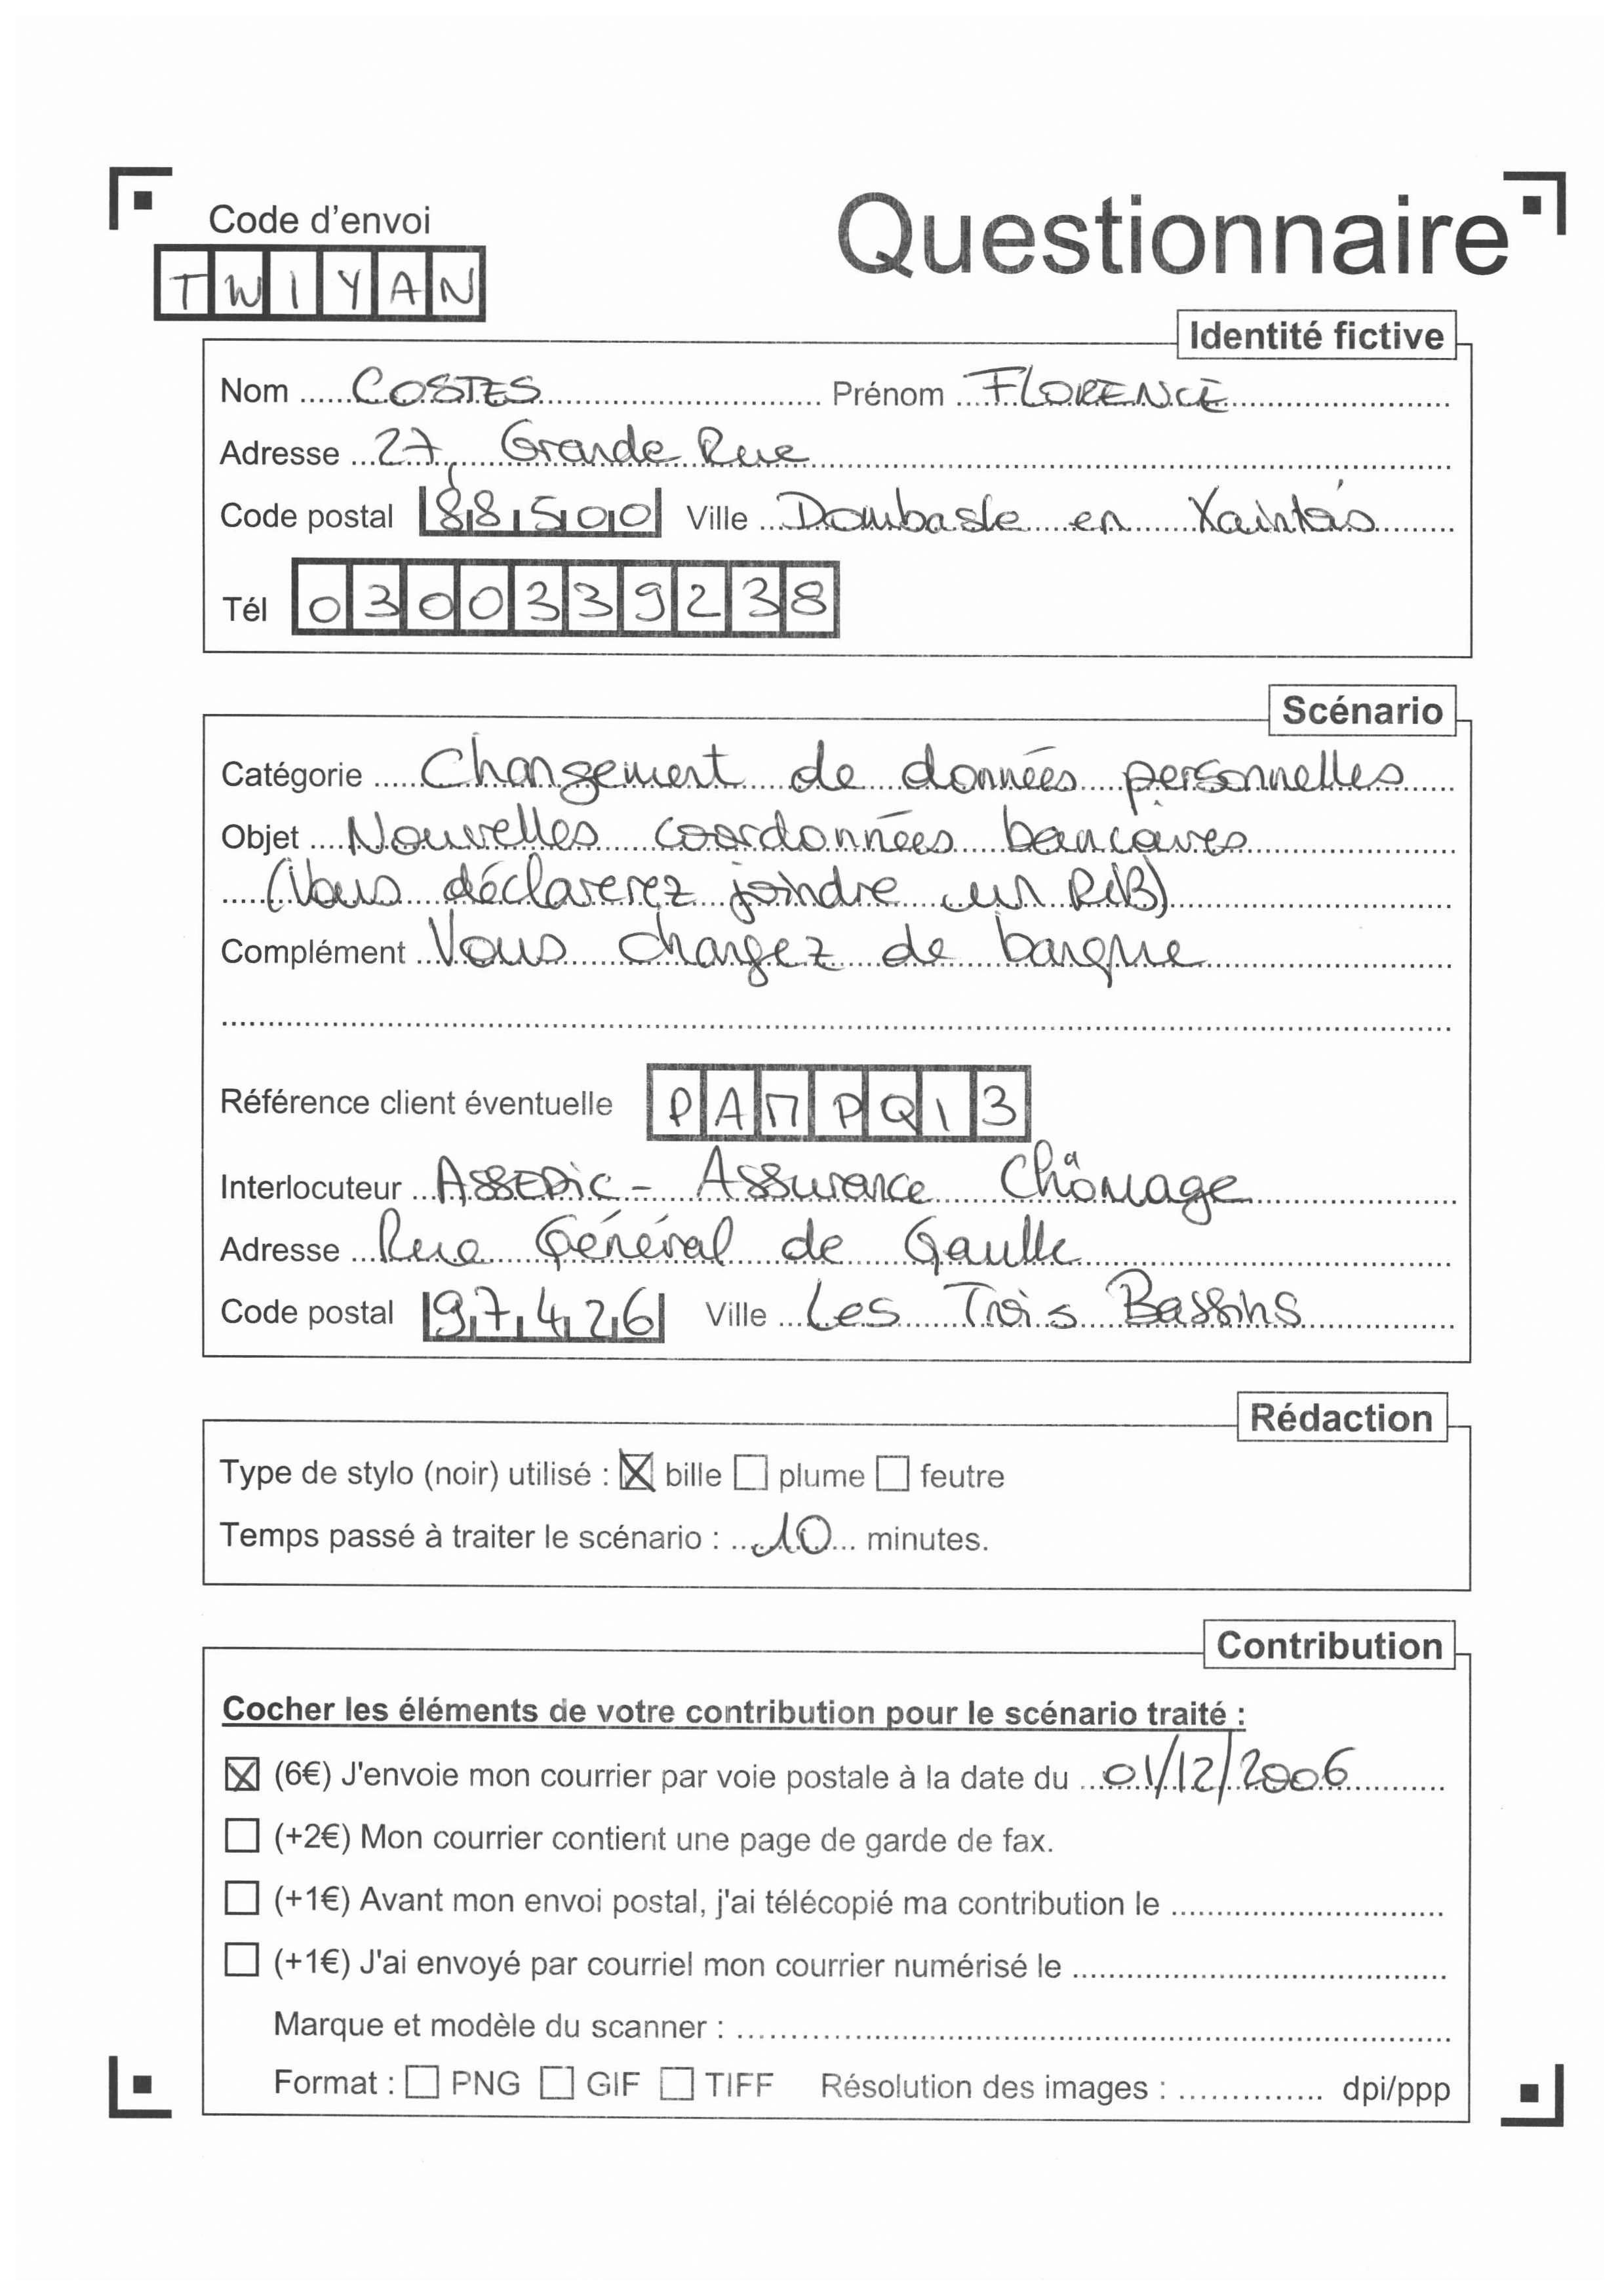 Questionnaire
Code d'envoi
TWIYAN
Identité fictive
Nom ...... COSTES ...... Prénom ...... FLORENCE
Adresse ... 27, Grande Rue
Code postal 88500 Ville ... Dombasle en Xaintois
Tél 0300339238
Scénario
Catégorie ..... Changement de données personnelles
Objet .... Nouvelles coordonnées bancaires
(Vous déclarerez joindre un RIB)
Complément .. Vous changez de banque
Référence client éventuelle PAMPQ13
Interlocuteur ... ASSEDIC - Assurance Chômage
Adresse ... Rue Général de Gaulle
Code postal 97426 Ville ... Les Trois Bassins
Rédaction
Type de stylo (noir) utilisé : ☒ bille ☐ plume ☐ feutre
Temps passé à traiter le scénario : .. 10 ... minutes.
Contribution
Cocher les éléments de votre contribution pour le scénario traité :
☒ (6€) J'envoie mon courrier par voie postale à la date du ... 01/12/2006
☐ (+2€) Mon courrier contient une page de garde de fax.
☐ (+1€) Avant mon envoi postal, j'ai télécopié ma contribution le ......
☐ (+1€) J'ai envoyé par courriel mon courrier numérisé le ......
Marque et modèle du scanner : ......
Format : ☐ PNG ☐ GIF ☐ TIFF Résolution des images : ...... dpi/ppp